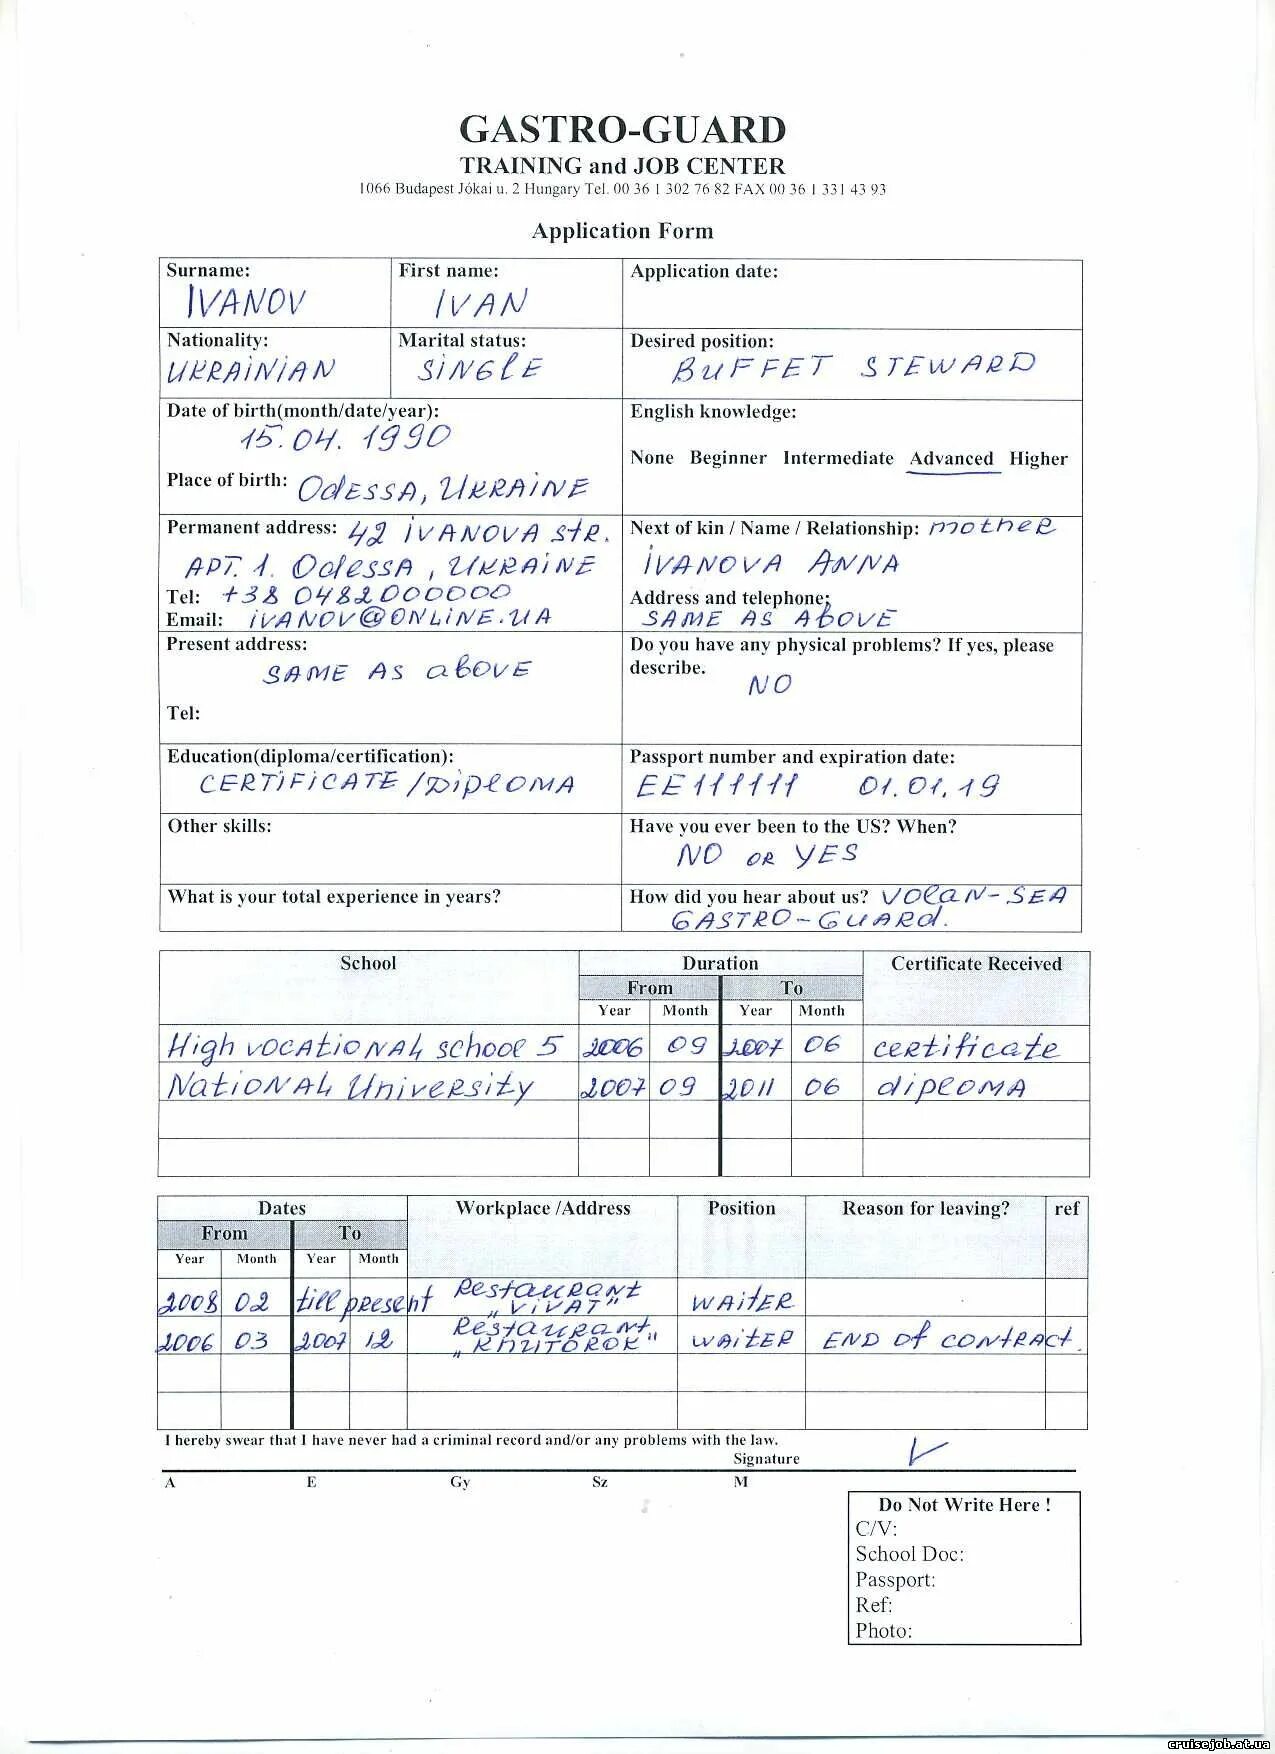 GASTRO-GUARD
TRAINING and JOB CENTER
1066 Budapest Jókai u. 2 Hungary Tel. 00 36 1 302 76 82 FAX 00 36 1 331 43 93
Application Form
Surname: First name: Application date:
IVANOV IVAN
Nationality: Marital status: Desired position:
UKRAINIAN SINGLE BUFFET STEWARD
Date of birth(month/date/year): English knowledge:
15.04. 1990
None Beginner Intermediate Advanced Higher
Place of birth: Odessa, UKRAINE
Permanent address: 42 IVANOVA Str. Next of kin / Name / Relationship: mother
APT. 1. Odessa, UKRAINE IVANOVA ANNA
Tel: +38 0482000000 Address and telephone:
Email: IVANOV@ONLINE.UA SAME AS AbOVE
Present address: Do you have any physical problems? If yes, please
describe.
SAME AS abOVE NO
Tel:
Education(diploma/certification): Passport number and expiration date:
CERTIFICATE/DiplOMA EE111111 01.01.19
Other skills: Have you ever been to the US? When?
NO OR YES
What is your total experience in years? How did you hear about us? VOlaN-SEA
GASTRO-GUARd.
School Duration Certificate Received
From To
Year Month Year Month
High vocational school 5 2006 09 2007 06 certificate
National University 2007 09 2011 06 diploma
Dates Workplace /Address Position Reason for leaving? ref
From To
Year Month Year Month
2008 02 till present Restaurant „VIVAT" WAITER
2006 03 2007 12 Restaurant „KHUTOROK" WAITER END of CONTRACT.
I hereby swear that I have never had a criminal record and/or any problems with the law.
Signature V
A E Gy Sz M
Do Not Write Here !
C/V:
School Doc:
Passport:
Ref:
Photo:
cruisejob.at.ua